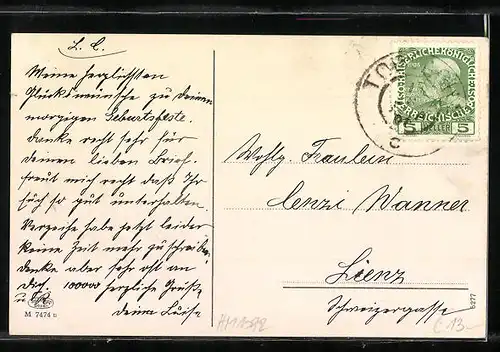 L. C.
Meine herzlichsten
Glückswünsche zu deinem
morgigen Geburtsfeste.
danke recht sehr für
deinen lieben Brief.
freut mich recht daß Ihr
Euch so gut unterhalten.
Verzeihe habe jetzt leider
keine Zeit mehr zu schreiben,
denke aber sehr oft an
Dich. 100000 herzliche Grüße
u.
deine Luise
M 7474 B
5 HELLER 5
Wohlg. Fräulein
Cenzi Wanner
Lienz
Schweizergasse
5277
€ 13.-